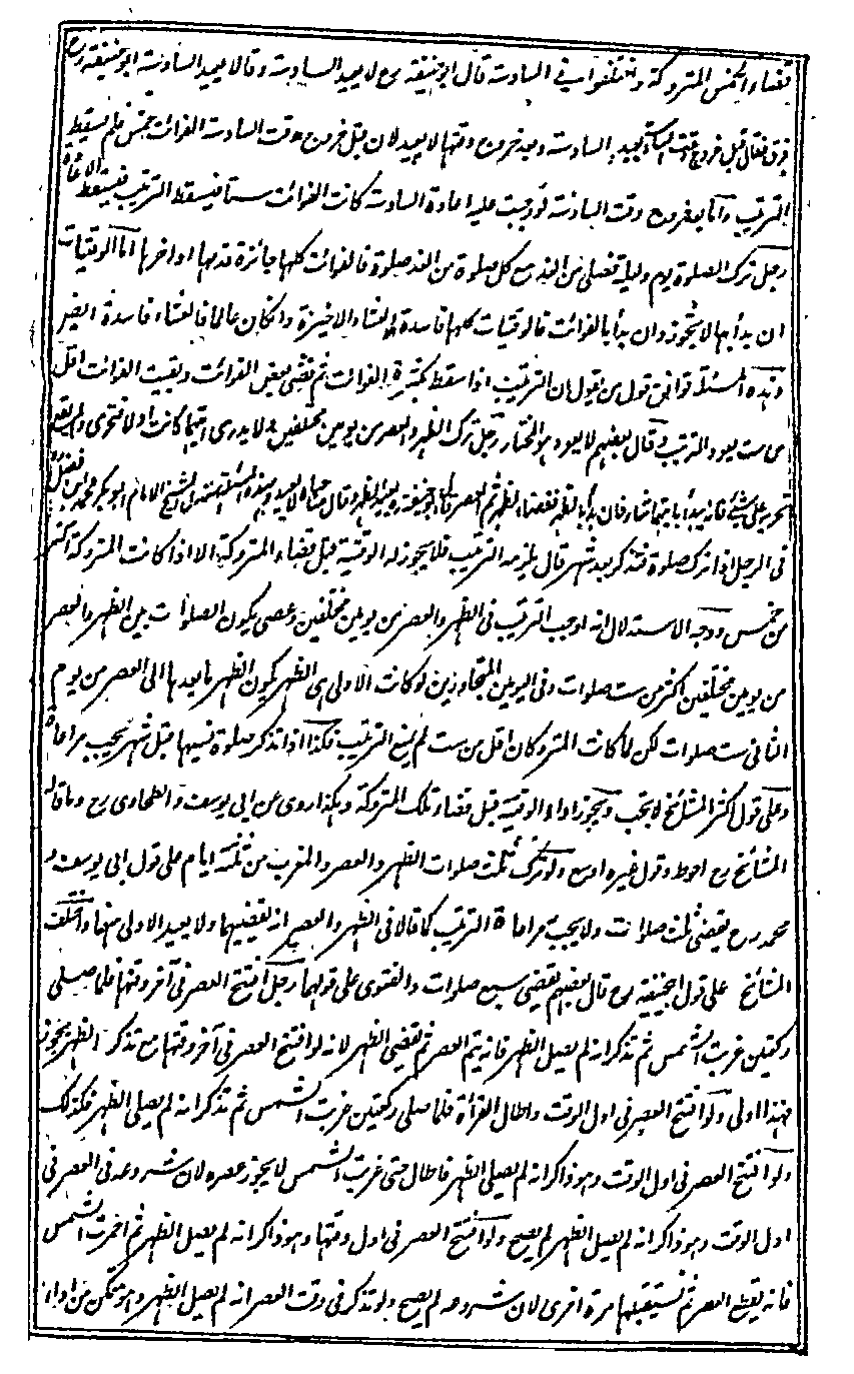 قضاء الخمس المتروكة واختلفوا في السادسة قال ابو حنيفة رح لا يعيد السادسة وقالا يعيد السادسة ابو حنيفة رح
فرق فقال قبل خروج وقت السادسة يعيد السادسة وبعد خروج وقتها لا يعيد لان قبل خروج وقت السادسة الفوائت خمس فلم يسقط
الترتيب واما بعد خروج وقت السادسة لو وجبت عليه اعادة السادسة كانت الفوائت ستا فيسقط الترتيب فيسقط الاعادة
رجل ترك الصلوة يوم وليلة فصلى من الغد مع كل صلوة من الغد صلوة فالفوائت كلها جائزة قدمها او اخرها اما الوقتيات
ان بدأ بها لا يجوز وان بدأ بالفوائت فالوقتيات كلها فاسدة الا العشاء الاخيرة وان كان عالما فالعشاء فاسدة ايضر
وهذه المسئلة توافق قول من يقول ان الترتيب اذا سقط بكثرة الفوائت ثم قضى بعض الفوائت وبقيت الفوائت اقل
من ست يعود الترتيب وقال بعضهم لا يعود هو المختار رجل ترك الظهر والعصر من يومين مختلفين لا يدرى ايتهما كانت اولا فتحرى ولم يقع
تحريه على شئ فانه يبدأ بايتهما شاء فان بدأ بالظهر فقضاء الظهر ثم العصر قال ابو حنيفة رح يعيد الظهر وقال صاحباه لا يعيد وبهذه المسئلة استدل الشيخ الامام ابو بكر محمد ابن الفضل
فى الرجل اذا ترك صلوة فتذكر بعد شهر قال يلزمه الترتيب فلا يجوز له الوقتية قبل قضاء المتروكة الا اذا كانت المتروكة اكثر
من خمس ووجه الاستدلال انه اوجب الترتيب فى الظهر والعصر من يومين مختلفين وعسى يكون الصلوات بين الظهر والعصر
من يومين مختلفين اكثر من ست صلوات وفى اليومين المتجاورين لو كانت الاولى هى الظهر يكون الظهر ما بعدها الى العصر من يوم
الثانى ست صلوات لكن لما كانت المتروكة اقل من ست لم يمنع الترتيب فكذا اذا تذكر صلوة نسيها قبل شهر يجب مراعاة
وعلى قول اكثر المشائخ لا يجب ويجوز اداء الوقتية قبل قضاء تلك المتروكة وهكذا روى عن ابى يوسف والطحاوى رح وما قاله
المشائخ رح احوط وقول غيره اوسع ولو ترك ثلث صلوات الظهر والعصر والمغرب من ثلثة ايام على قول ابى يوسف و
محمد رح يقضى ثلث صلوات ولا يجب مراعاة الترتيب كما قالا فى الظهر والعصر انه يقضيهما ولا يعيد الاولى منهما واختلف
المشائخ على قول ابى حنيفة رح قال بعضهم يقضى سبع صلوات والفتوى على قولهما رجل افتتح العصر فى آخر وقتها فلما صلى
ركعتين غربت الشمس ثم تذكر انه لم يصل الظهر فانه يتم العصر ثم يقضى الظهر لانه لو افتتح العصر فى آخر وقتها مع تذكر الظهر يجوز
فهذا اولى ولو افتتح العصر فى اول الوقت واطال القراءة فلما صلى ركعتين غربت الشمس ثم تذكر انه لم يصلى الظهر فكذلك
ولو افتتح العصر فى اول الوقت وهو ذاكر انه لم يصلى الظهر فاطال حتى غربت الشمس لا يجوز عصره لان شروعه فى العصر فى
اول الوقت وهو ذاكر انه لم يصل الظهر لم يصح ولو افتتح العصر فى اول وقتها وهو ذاكر انه لم يصل الظهر ثم احمرت الشمس
فانه يقطع العصر ثم يستقبلها مرة اخرى لان شروعه لم يصح ولو تذكر فى وقت العصر انه لم يصل الظهر وهو متمكن من اداء